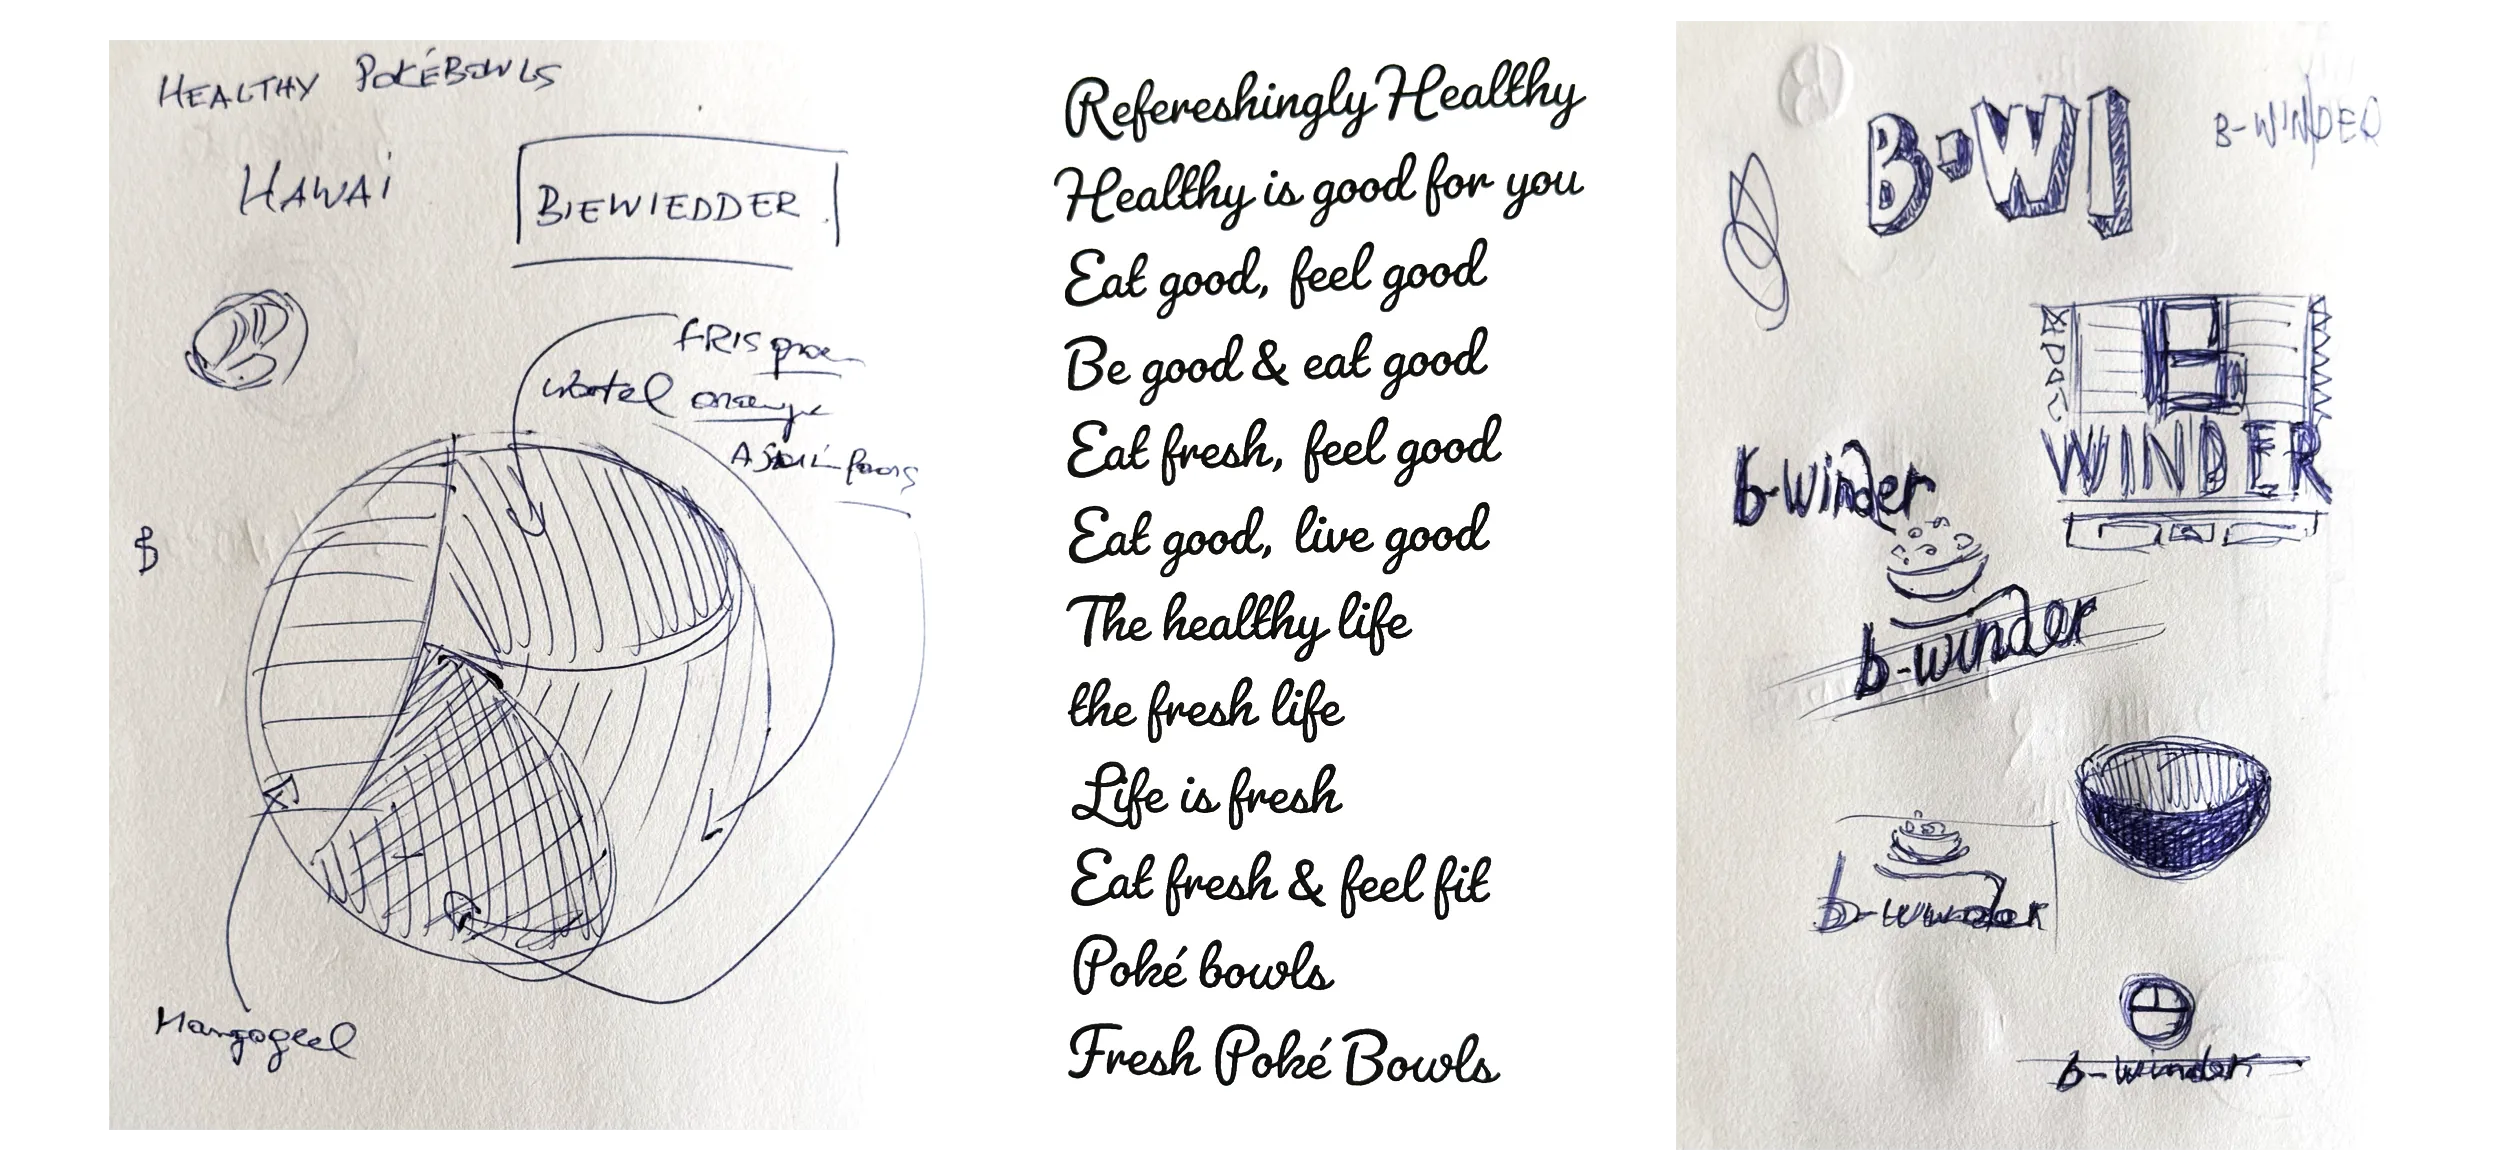 HEALTHY POKÉBOWLS
HAWAi
BIEWIEDDER
FRIS groen
wortel oranje
Mangogeel
Refereshingly Healthy
Healthy is good for you
Eat good, feel good
Be good & eat good
Eat fresh, feel good
Eat good, live good
The healthy life
the fresh life
Life is fresh
Eat fresh & feel fit
Poké bowls
Fresh Poké Bowls
B-WI
B-WINDER
B
WINDER
b-winder
b-winder
b-winder
b-winder